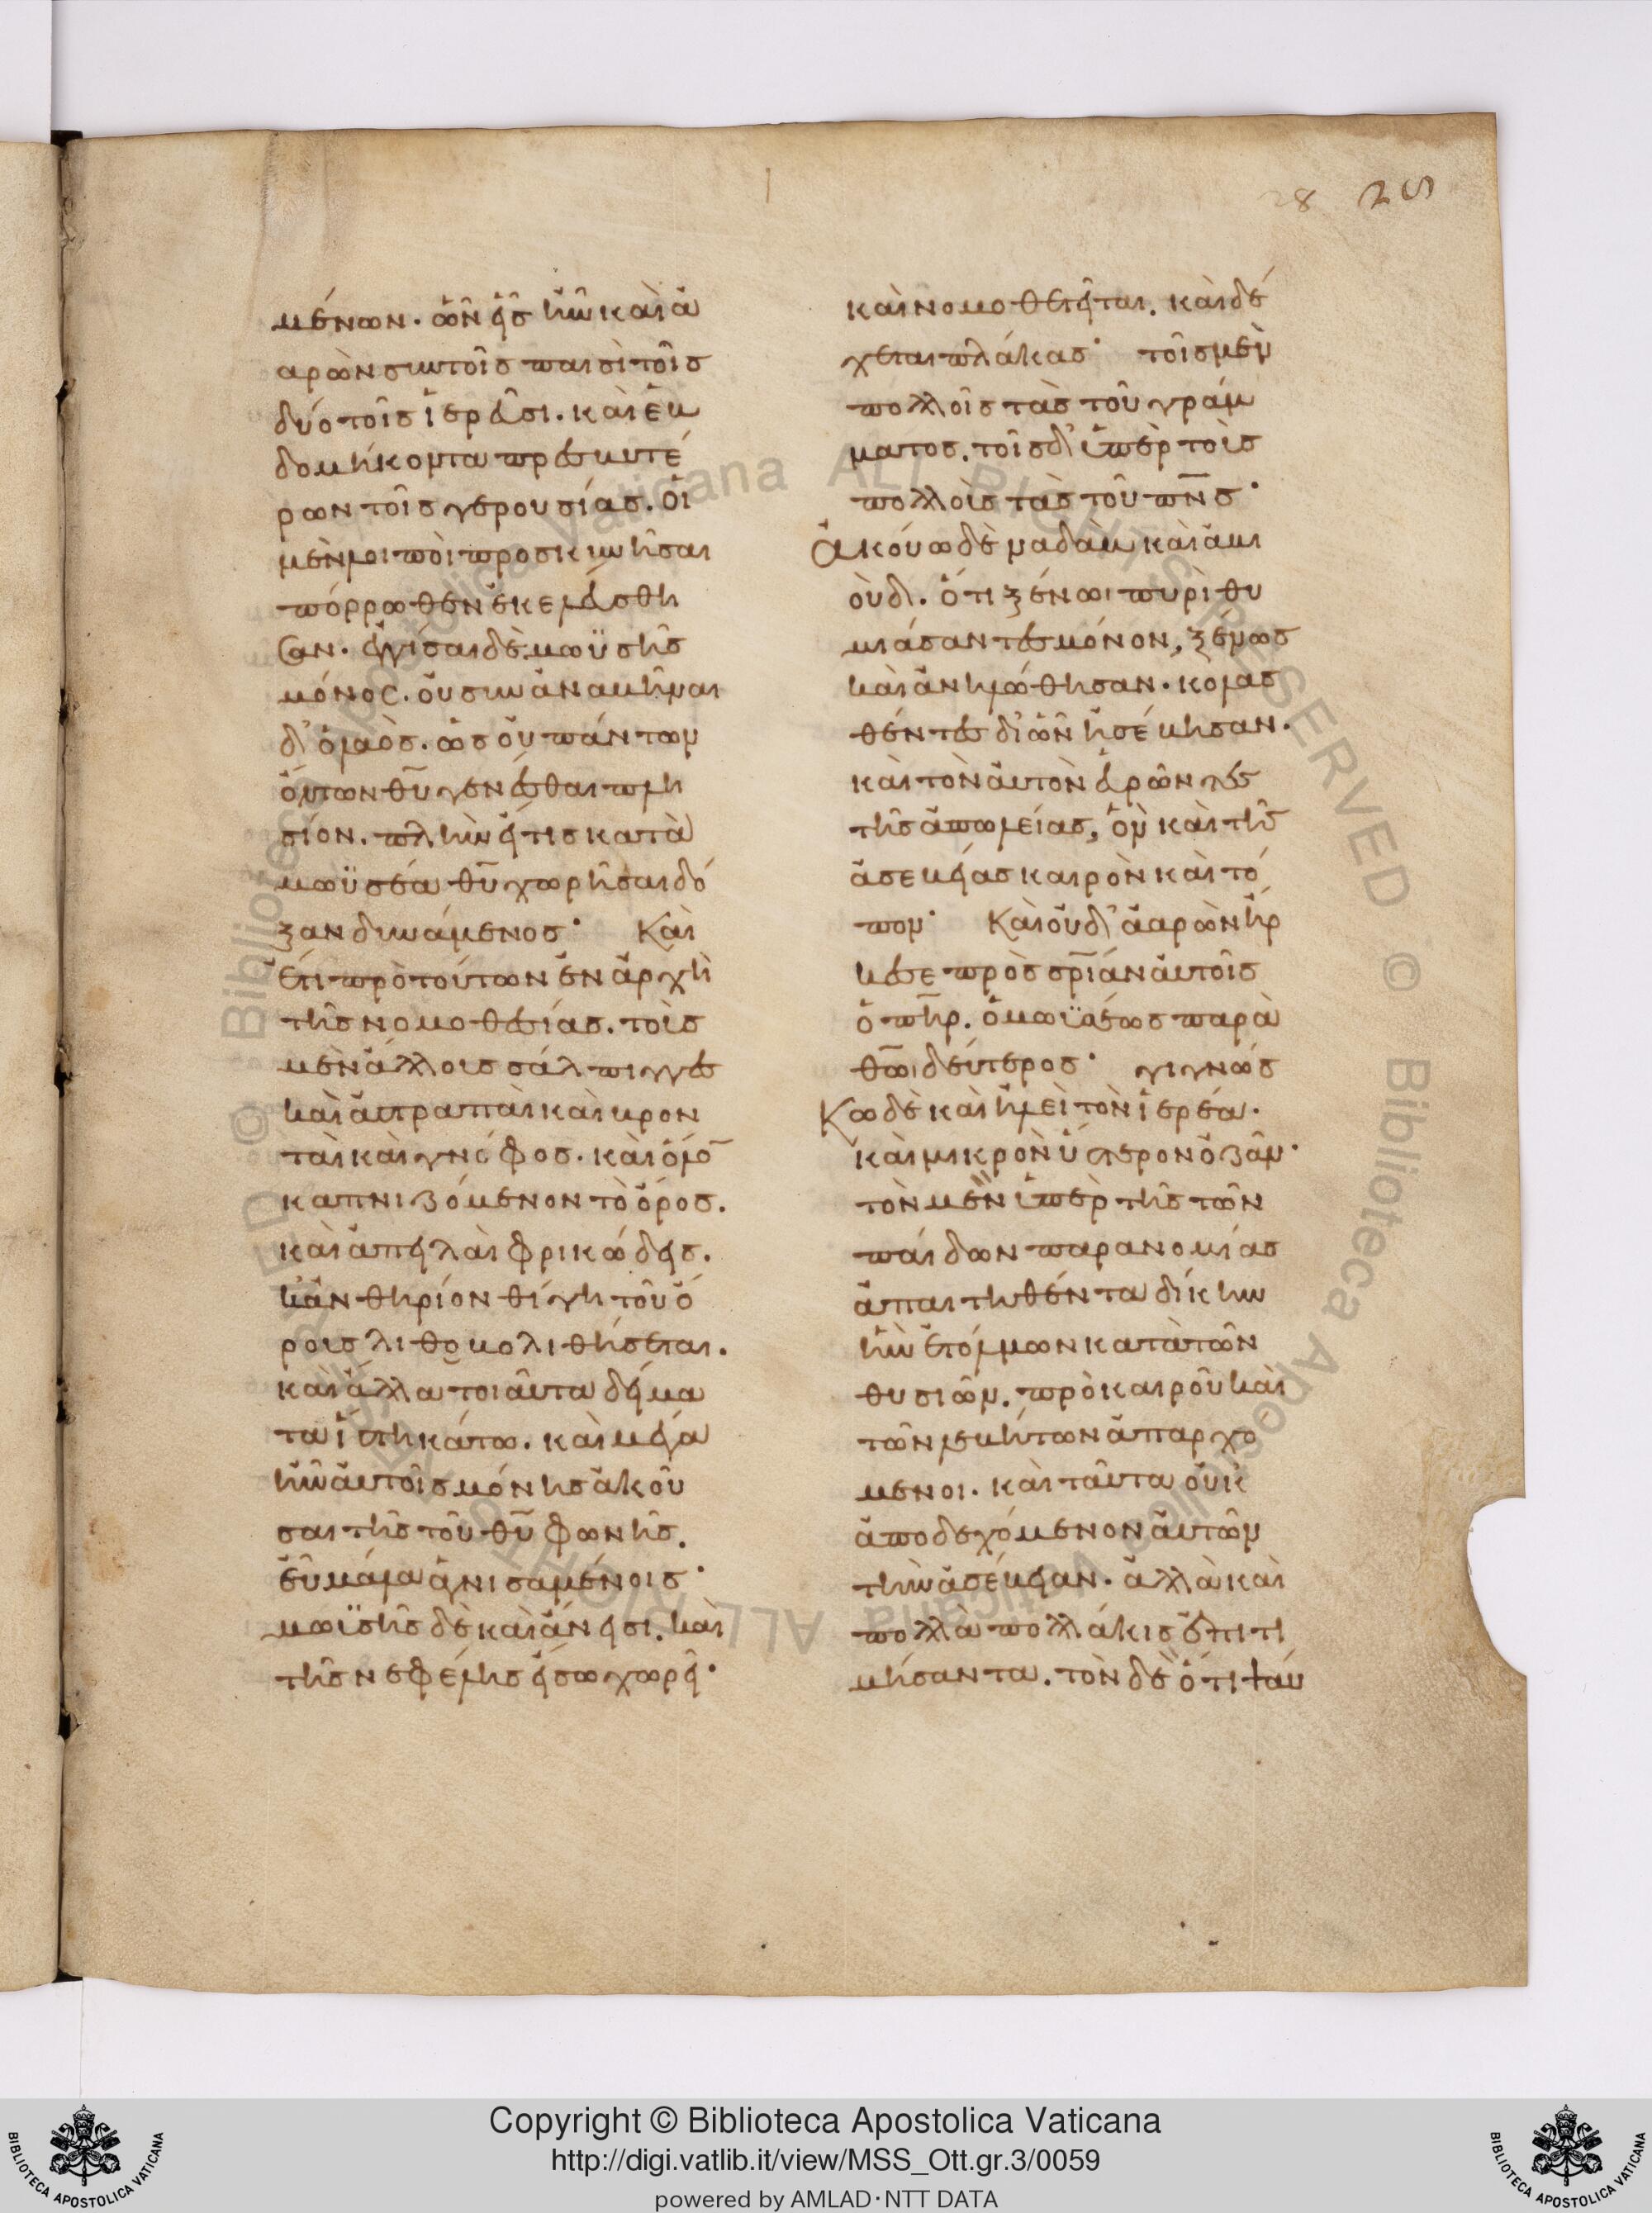 28 25
μένων. ὧν εἷς ἦν καὶ ἀ
αρὼν σὺν τοῖς παισὶ τοῖς
δύο τοῖς ἱερεῦσι. καὶ ἑβ
δομήκοντα πρεσβυτέ
ρων τοῖς γερουσίας. οἱ
μὲν λοιποὶ προσκυνῆσαι
πόρρωθεν ἐκελεύσθη
σαν. ἐγγίσαι δὲ μωϋσῆς
μόνος. οὐ συναναβῆναι
δ' ὁ λαὸς. ὡς οὐ πάντων
ὄντων θ̅υ̅ γενέσθαι πλη
σίον. πλὴν εἴ τις κατὰ
μωϋσέα θ̅υ̅ χωρῆσαι δό
ξαν δυνάμενος· Καὶ
ἔτι πρὸ τούτων ἐν ἀρχῆ
τῆς νομοθεσίας. τοῖς
μὲν ἄλλοις σάλπιγγες
καὶ ἀστραπαὶ καὶ βρον
ταὶ καὶ γνόφος. καὶ ὅλο̅
καπνιζόμενον τὸ ὄρος.
καὶ ἀπειλαὶ φρικώδεις.
κἂν θηρίον θίγη τοῦ ὄ
ρους λιθοβοληθήσεται.
καὶ ἄλλα τοιαῦτα δείμα
τα ἵστη κάτω. καὶ μεῖα
ἦν αὐτοῖς μόνης ἀκοῦ
σαι τῆς τοῦ θ̅υ̅ φωνῆς.
εὖ μάλα ἁγνισαμένοις·
μωϋσῆς δὲ καὶ ἄνεισι. καὶ
τῆς νεφέλης εἴσω χωρεῖ·
καὶ νομοθετεῖται. καὶ δέ
χεται πλάκας· τοῖς μὲν
πολλοῖς τὰς τοῦ γράμ
ματος. τοῖς δ' ὑπὲρ τοὺς
πολλοὺς τὰς τοῦ π̅ν̅ς̅·
Ἀκούω δὲ ναδὰβ καὶ ἀβι
οὺδ. ὅτι ξένωι πυρὶ θυ
μιάσαντες μόνον, ξένως
καὶ ἀνηλώθησαν. κολασ
θέντες δι' ὧν ἠσέβησαν.
καὶ τὸν αὐτὸν εὑρῶντες
τῆς ἀπωλείας, ὃν καὶ τῆς
ἀσεβείας καιρὸν καὶ τό
πον· Καὶ οὐδ' ἀαρὼν ἤρ
κεσε πρὸς σ̅ρ̅ίαν αὐτοῖς
ὁ π̅η̅ρ̅. ὁ μωϋσέως παρὰ
θ̅ω̅ι δεύτερος· γιγνώσ
Κω δὲ καὶ ἠλεὶ τὸν ἱερέα.
καὶ μικρὸν ὕστερον ὀζᾶν·
τὸν μὲν ὑπὲρ τῆς τῶν
παίδων παρανομίας
ἀπαιτηθέντα δίκην
ἣν ἐτόλμων κατὰ τῶν
θυσιῶν. πρὸ καιροῦ καὶ
τῶν λεβήτων ἀπαρχό
μενοι. καὶ ταῦτα οὐκ
ἀποδεχόμενον αὐτῶν
τὴν ἀσέβειαν. ἀλλὰ καὶ
πολλὰ πολλάκις ἐπιτι
μήσαντα. τὸν δὲ ὅτι ταύ
Copyright © Biblioteca Apostolica Vaticana
http://digi.vatlib.it/view/MSS_Ott.gr.3/0059
powered by AMLAD·NTT DATA